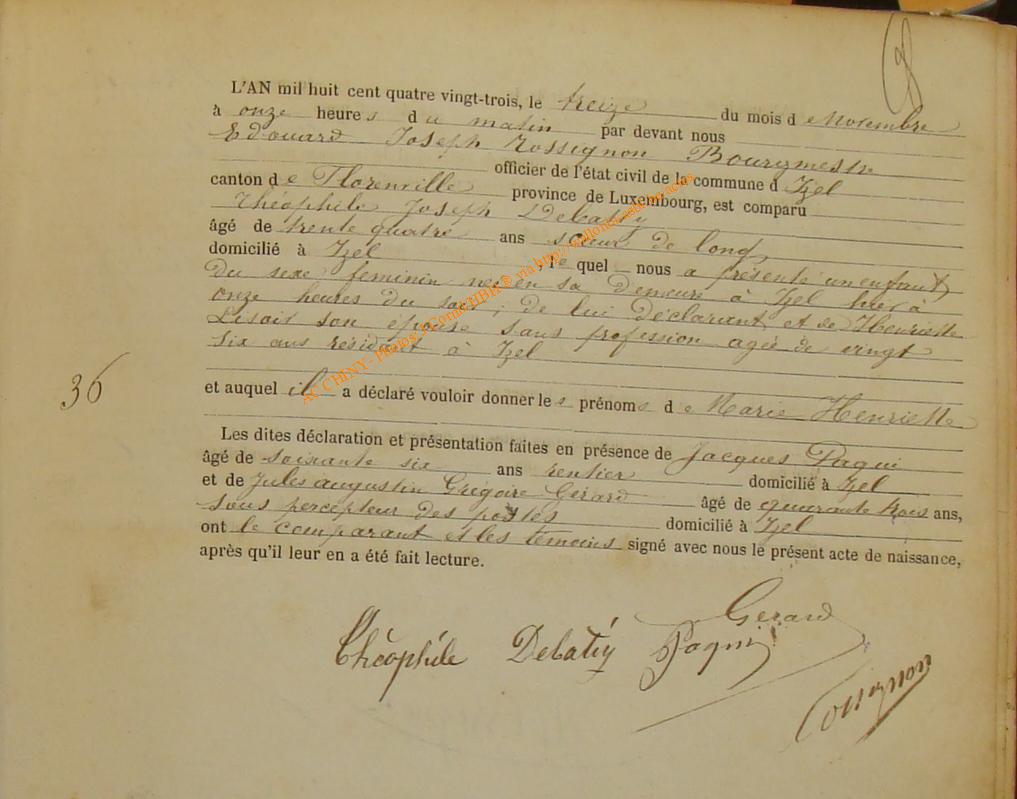 L'AN mil huit cent quatre vingt-trois, le treize du mois de Novembre
à onze heures du matin par devant nous
Edouard Joseph Rossignon Bourgmestre
officier de l'état civil de la commune d Izel
canton de Florenville province de Luxembourg, est comparu
Théophile Joseph Debatty
âgé de trente quatre ans scieur de long
domicilié à Izel, le quel nous a présenté un enfant
du sexe feminin née en sa demeure à Izel hier à
onze heures du soir, de lui déclarant et de Henriette
Lisoit son épouse sans profession agée de vingt
six ans résidant à Izel
36
et auquel il a déclaré vouloir donner les prénoms de Marie Henriette
Les dites déclaration et présentation faites en présence de Jacques Paqui
âgé de soixante six ans rentier domicilié à Izel
et de Jules augustin Grégoire Gérard âgé de quarante trois ans,
sous percepteur des postes domicilié à Izel
ont le comparant et les témoins signé avec nous le présent acte de naissance,
après qu'il leur en a été fait lecture.
Gerard
Théophile Debatty Paqui
Rossignon